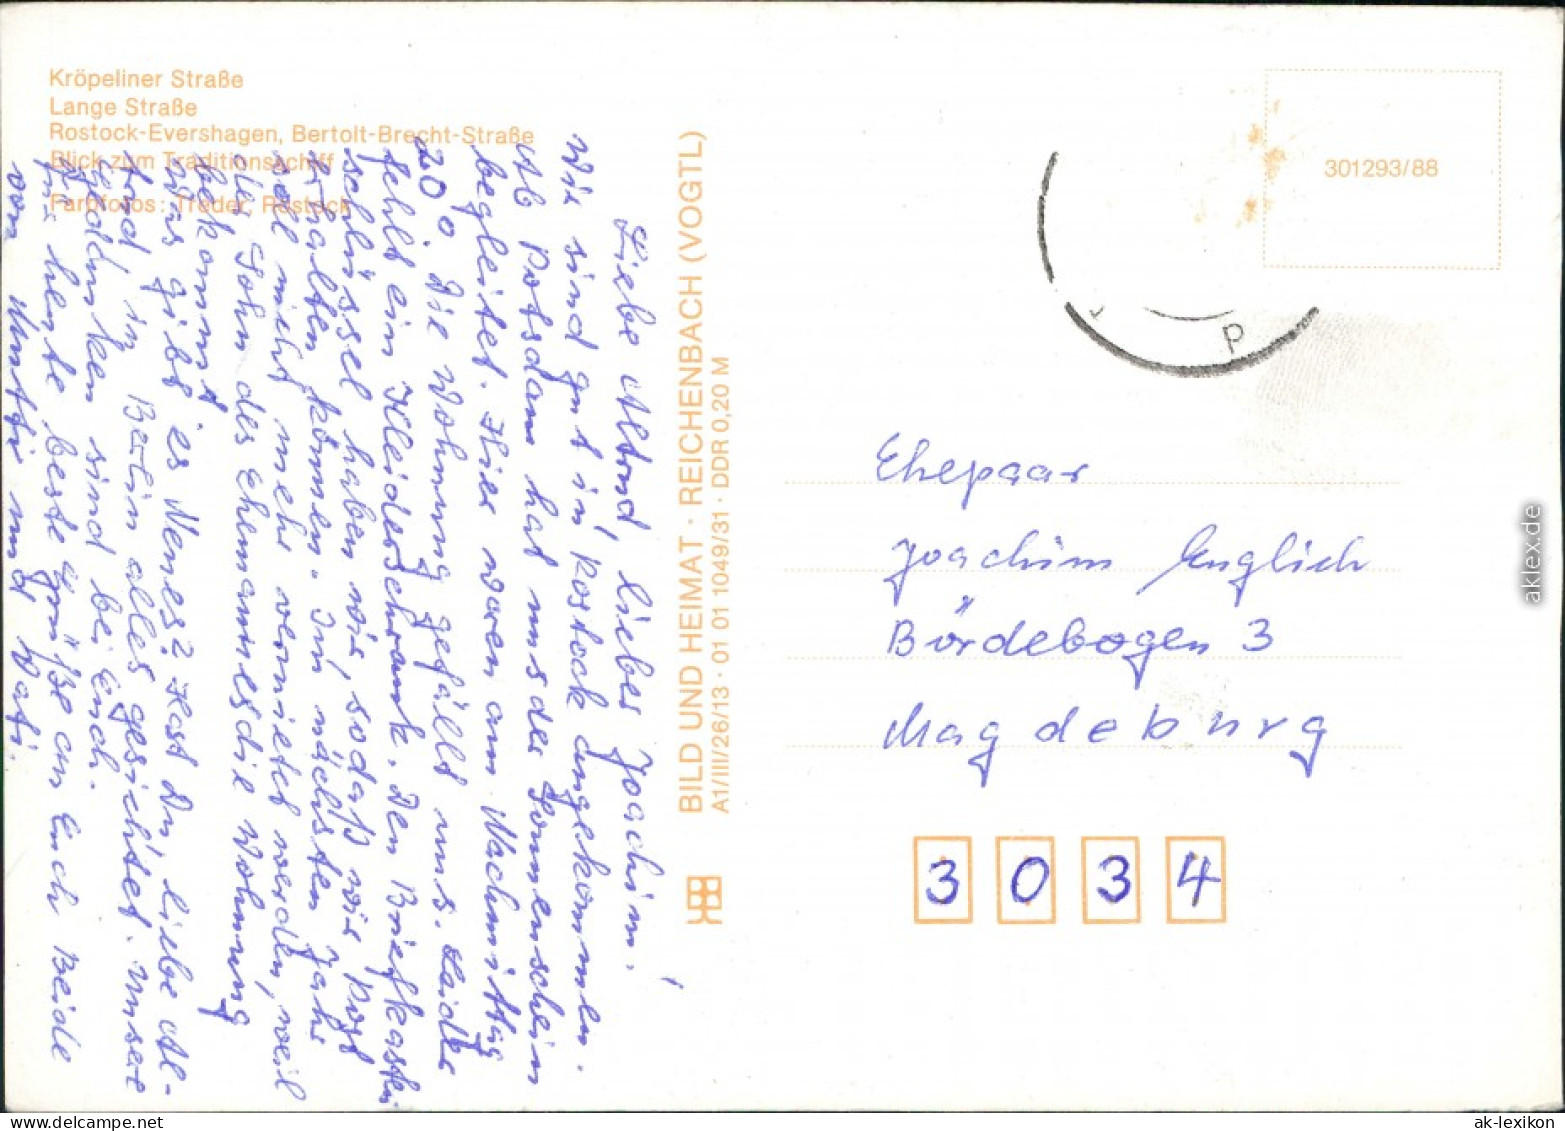 Kröpeliner Straße
Lange Straße
Rostock-Evershagen, Bertolt-Brecht-Straße
Blick zum Traditionsschiff
Farbfotos: Treder, Rostock
Liebe Astrid, lieber Joachim!
Wir sind gut in Rostock angekommen.
Ab Potsdam hat uns der Sonnenschein
begleitet. Hier waren am Nachmittag
20°. Die Wohnung gefällt uns. Leider
fehlt ein Kleiderschrank. Den Briefkasten-
schlüssel haben wir, sodaß wir Post
erhalten können. Im nächsten Jahr
soll nicht mehr vermietet werden, weil
der Sohn des Ehemannes die Wohnung
bekommt.
Was gibt es Neues? Hast Du, liebe
in Berlin alles gesichtet. Unsere
Gedanken sind bei Euch.
Für heute beste Grüße an Euch Beide
von Mutti und Vati.
BILD UND HEIMAT · REICHENBACH (VOGTL)
A1/III/26/13 · 01 01 1049/31 · DDR 0,20 M
301293/88
P
Ehepaar
Joachim Englich
Bördebogen 3
Magdeburg
3 0 3 4
aklex.de
www.ansichtskarten-lexikon.de
ak-lexikon